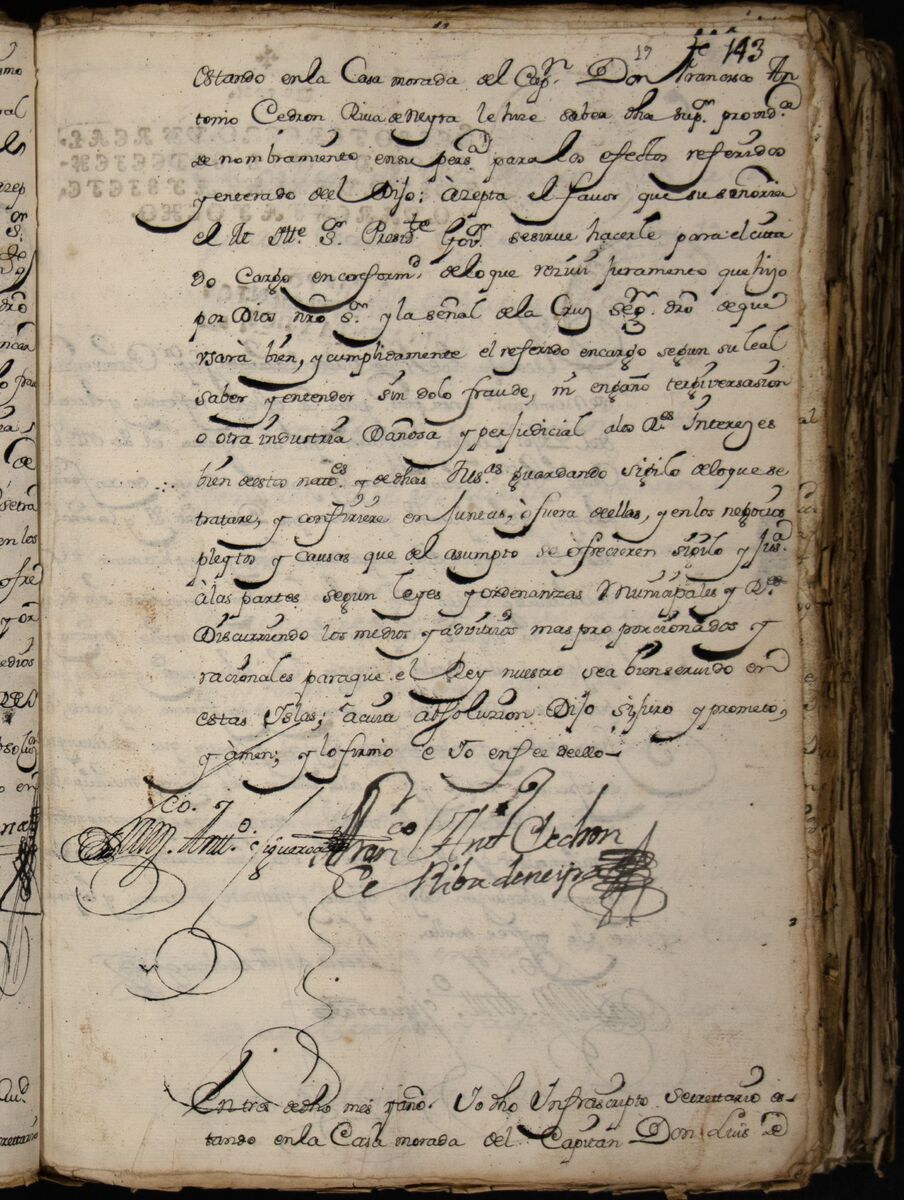 19 143
estando en la Casa morada del Capn. Don Francisco An
tonio Cedron Riva de Neyra le hize saver dha supr. providª
de nombramiento en su persª. para los efectos referidos
y enterado de el Dijo: àzepta el favor que su señoria
el Ill Itte. Sr. Presidte Govr. sesirve hacerle para el cita
do Cargo en conformd. delo que reziví Juramento que hizo
por Dios nr̃o Sr. y la señal de la Cruz segn. dr̃o de que
vsarà bien, y cumplidamente el referido encargo segun su leal
saber y entender sin dolo fraude, ni engaño tergiversasion
o otra industria Dañosa y perjudicial alos Rs Interezes
bien destos natoes. y de dhas Yslas guardando sigilo delo que se
tratare, y confiriere en Juntas, ò fuera dellas, y en los negocios
pleytos y causas que del asumpto se ofrecieren sigilo y Jusª.
à las partes segun leyes y ordenanzas Municipales y Rs
Discurriendo los medios y advitrios mas proporcionados y
racionales paraque el Rey nuestro sea bien servido en
estas Yslas; acuia absoluzion Dijo si juro y prometo,
y àmen; y lo firmo è Yo en fee dello
Franco Antº Cedron
de Riba deneyra
Antº. Figueroa
En tres de dho mes y año. Yo dho Infrascripto Secrettario es-
tando en la Casa morada del Capitan Don Luis de